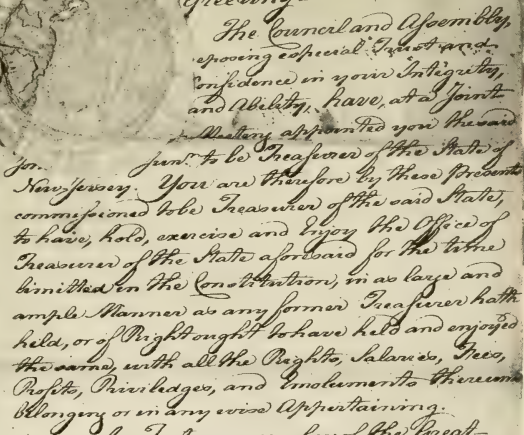 Greeting
The Council and Assembly,
eposing especial Trust and
onfidence in your Integrity,
and Ability, have, at a Joint
Meeting appointed you the said
Jon. Junr. to be Treasurer of the State of
New Jersey. You are therefore by these Presents
commissioned to be Treasurer of the said State,
to have, hold, exercise and Enjoy the Office of
Treasurer of the State aforesaid for the time
limitted in the Constitution, in as large and
ample Manner as any former Treasurer hath
held, or of Right ought to have held and enjoyed
the same, with all the Rights, Salaries, Fees,
Profits, Priviledges, and Emoluments thereunto
belonging or in any wise Appertaining.
of the Great